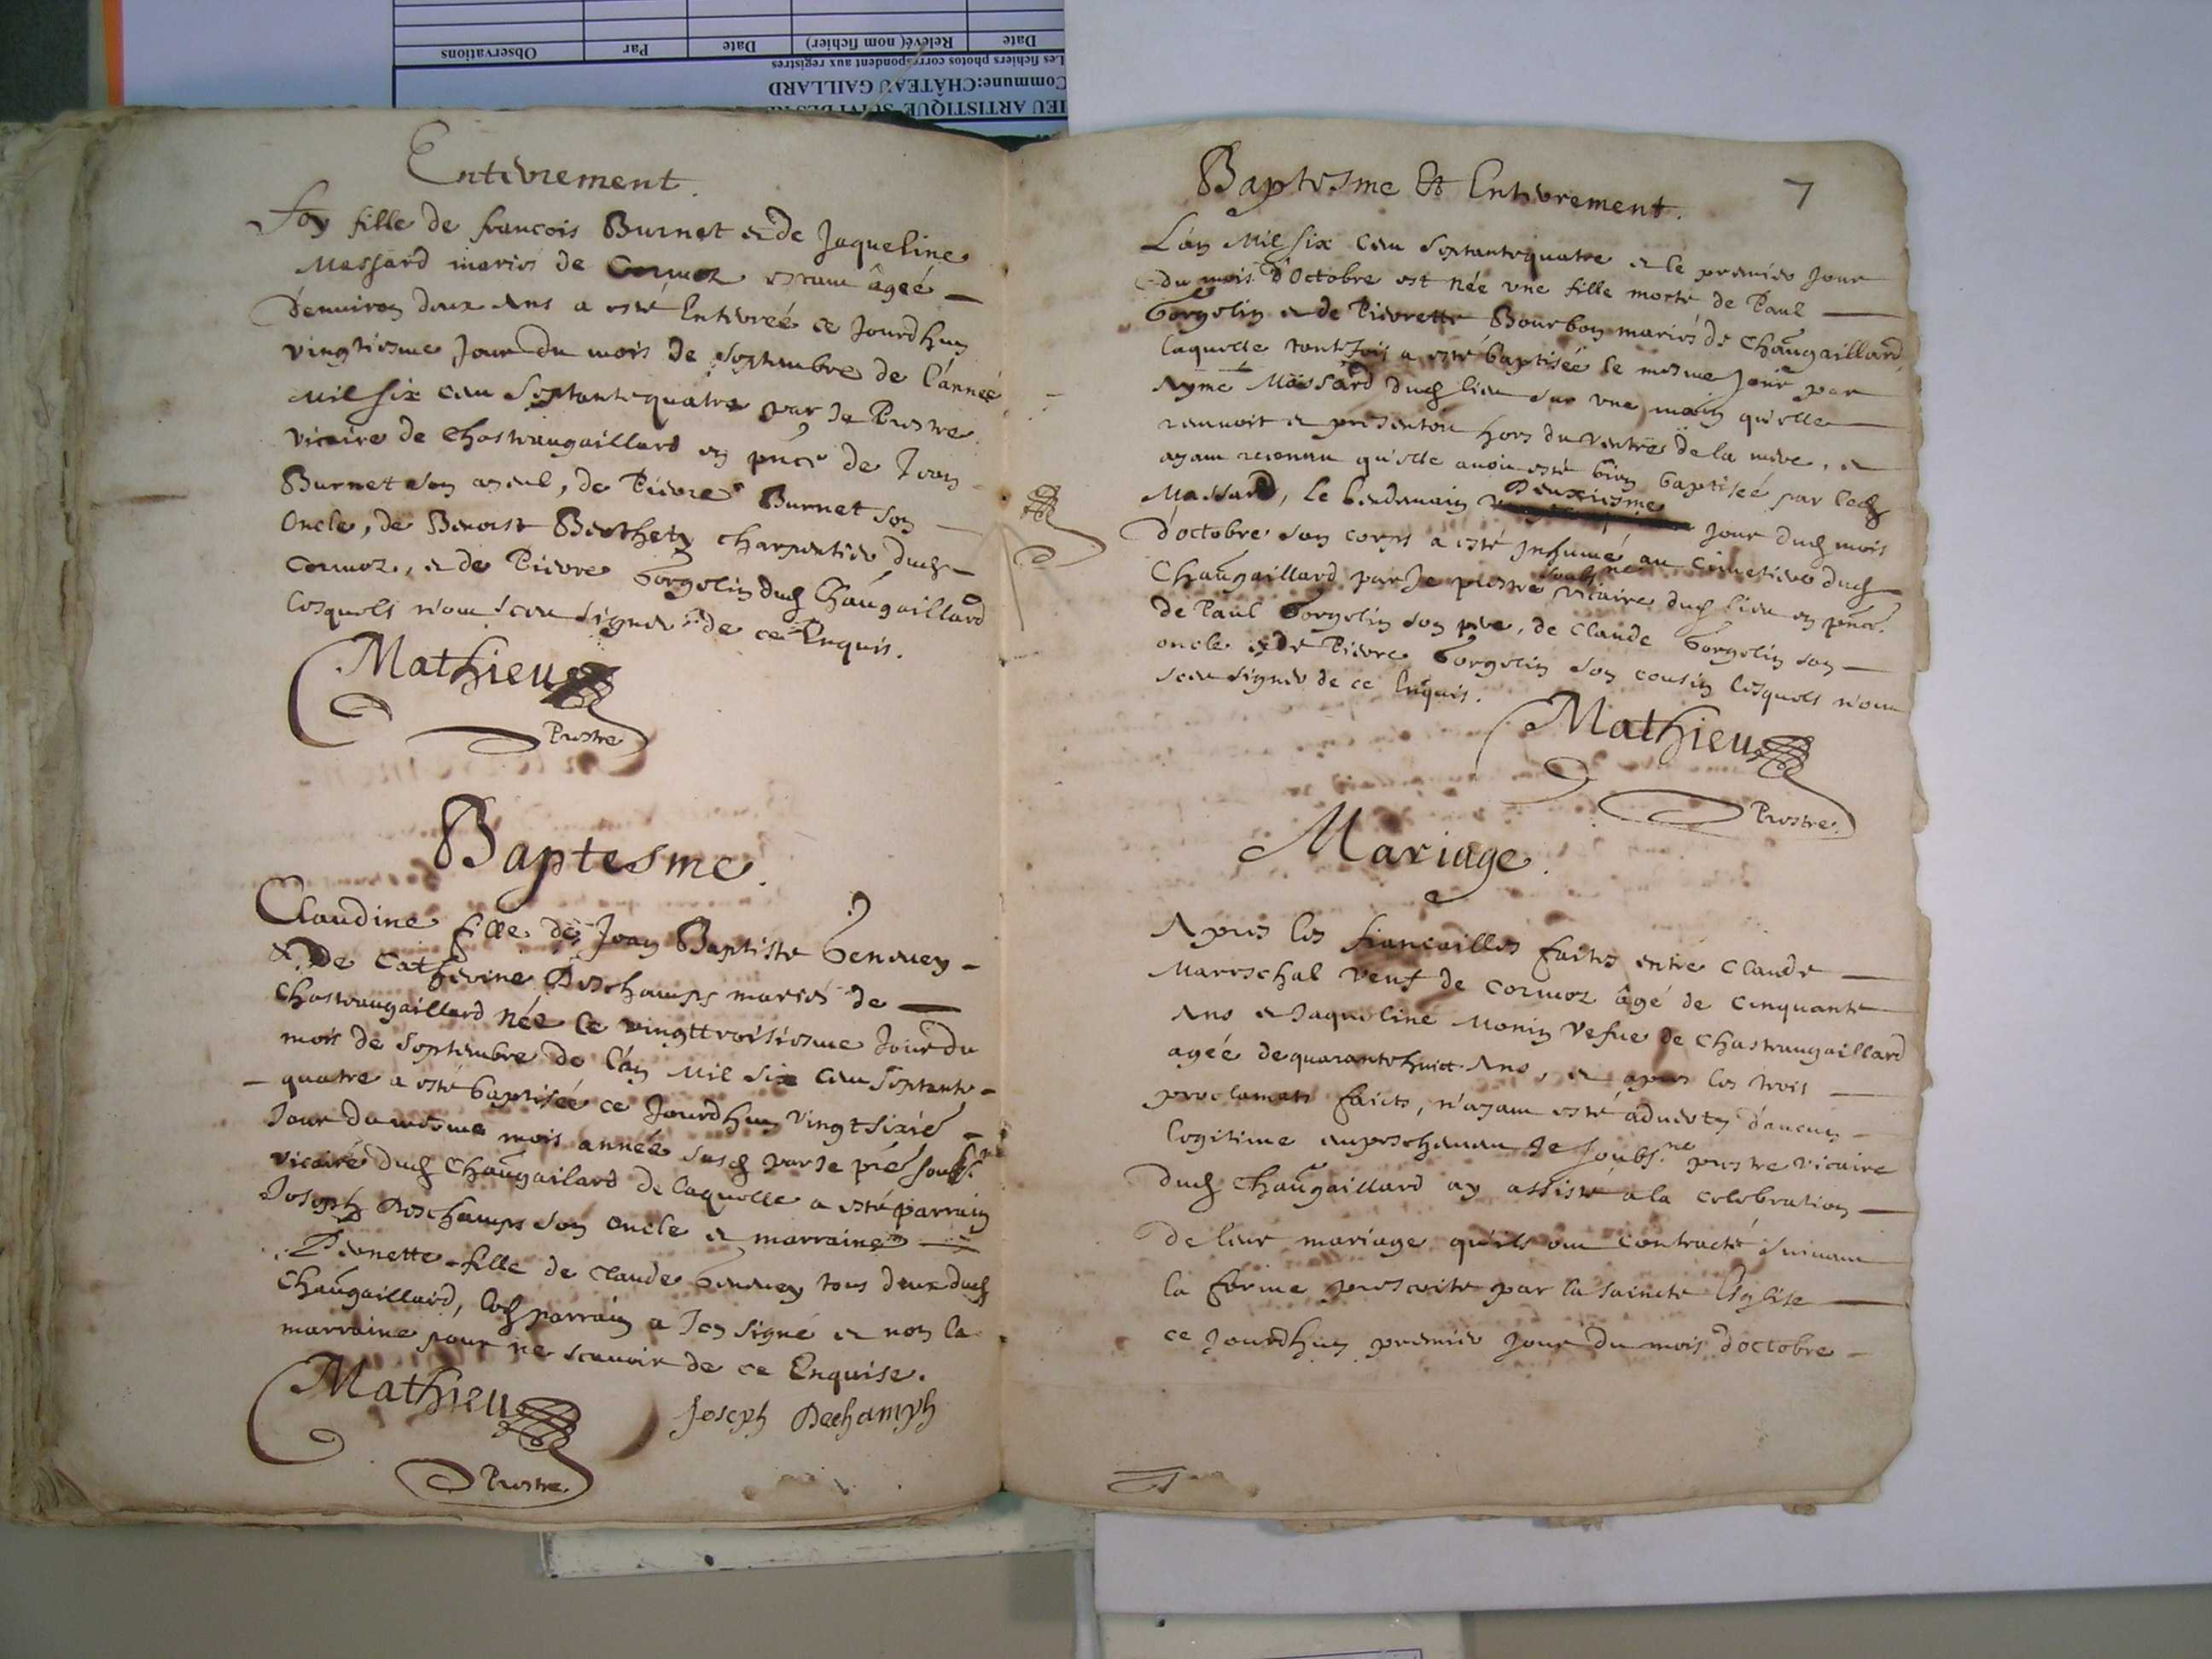 Observations
Par
Date
Relevé (nom fichier)
Date
Les fichiers photos correspondent aux registres
Commune:CHÂTEAU GAILLARD
IEU ARTISTIQUE-SUIVI DES RE
Enterrement.
Foy fille de francois Burnet et de Jaqueline
Massard mariés de Cormoz estant âgeé
d'enuiron deux ans a esté Enterreé ce Jourdhuy
vingtiesme Jour du mois de septembre de l'anneé
Mil six cens septante quatre par Je Prestre
vicaire de chasteaugaillard en pnce de Jean
Burnet son ayeul, de Pierre Burnet son
Oncle, de Benoist Berthety charpentier dud
Cormoz, et de Pierre Gorgolin dud Chaugaillard
lesquels n'ont sceu signer de ce Enquis.
Mathieu
Prestre
Baptesme.
Claudine fille de Jean Baptiste Genevey
& de Catherine Deschamps mariés de
Chasteaugaillard née le vingttroisiesme Jour du
mois de septembre de l'an Mil six cens septante
quatre a esté baptisée ce Jourdhuy vingtsixie
Jour du mesme mois année susd par Je pre soubsne
vicaire dud Chaugailard de laquelle a esté parrain
Joseph Deschamps son oncle et marraine
Pernette fille de claude Genevey tous deux dud
Chaugaillard, led parrain a Icy signé et non la
marraine pour ne scauoir de ce Enquise.
Mathieu
Joseph Dechamph
Prestre
7
Baptesme Et Enterrement.
L'an Mil six cens septantequatre et le premier Jour
du mois d'Octobre est née vne fille morte de Paul
Gorgolin et de Pierrette Bourbon mariés de Chaugaillard,
laquelle toutesfois a esté baptisée le mesme Jour par
Ayme Massard dud lieu sur vne main qu'elle
remuoit et presentoit hors du ventre de la mere, et
ayant reconnu qu'elle auoit esté bien baptiseé par lad
Massard, le lendemain Deuxiesme jour dud mois
d'octobre son corps a esté Inhumé au cimetiere dud
Chaugaillard par Je prestre soubsne vicaire dud lieu en pnce
de Paul Gorgolin son pere, de Claude Gorgolin son
oncle et de Pierre Gorgolin son cousin lesquels n'ont
sceu signer de ce Enquis.
Mathieu
Prestre.
Mariage.
Apres les fiancailles faites entre Claude
Mareschal veuf de cormoz âgé de cinquante
Ans et Jaqueline Monin vefue de Chasteaugaillard
ageé de quarantehuict Ans, et apres les trois
proclamats faicts, n'ayant esté aduerty d'aucun
legitime empeschement Je soubsne prestre vicaire
dud Chaugaillard ay assisté a la celebration
de leur mariage qu'ils ont contracté suiuant
la forme prescrite par la saincte Eglise
ce Jourdhuy premier Jour du mois d'octobre